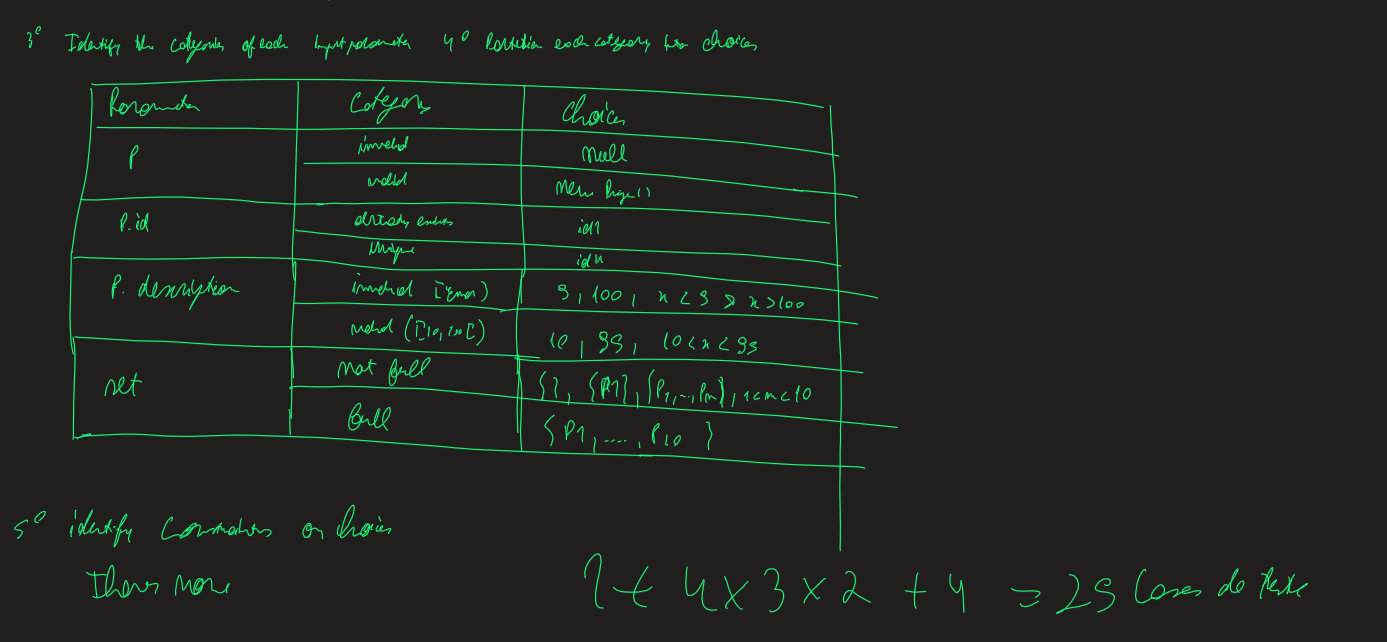 3º Identify the categories of each input parameter 4º Partition each category into choices
Parameter Category Choices
P invalid null
valid new Page()
P.id already exists id1
unique idn
P. description invalid [Error] 9, 100, x < 9 x > 100
valid ([10, 100[) 10, 99, 10 < x < 99
set not full { }, {P1}, {P1, ..., Pm}, 1 < m < 10
full {P1, ...., P10 }
5º identify constraints on choices
There's None
1 + 4 x 3 x 2 + 4 = 29 Casos de teste